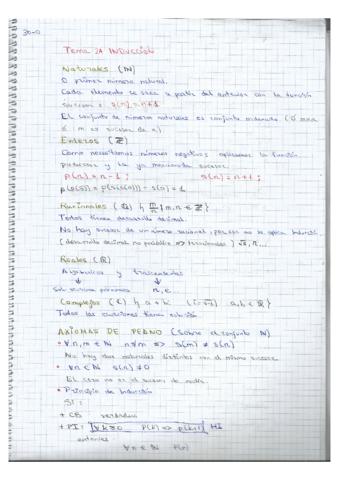 30-0
Tema 2A INDUCCIÓN
Naturales (ℕ)
0 primer número natural.
Cada elemento se crea a partir del anterior con la función
sucesor: s(n) = n+1
El conjunto de números naturales es conjunto ordenado (0
si m es sucesor de n)
Enteros (ℤ)
Como necesitamos números negativos aplicamos la función
predecesor y la ya mencionada sucesor.
p(n) = n-1 ; s(n) = n+1 ;
Racionales (ℚ) { m/n | m,n ∈ ℤ }
Todos tienen desarrollo decimal.
No hay sucesor de un número racional, por eso no se aplica inducción
(desarrollo decimal no periódico => irracionales) √2, π, ...
Reales (ℝ)
Algebraicos y trascendentes
↓ ↓
Sol. π, e
Complejos (ℂ) { a+bi (i=√-1) a,b ∈ ℝ }
Todas las ecuaciones tienen solución
AXIOMAS DE PEANO (sobre el conjunto ℕ)
• ∀n,m ∈ ℕ n≠m => s(m) ≠ s(n)
No hay dos naturales distintos con el mismo sucesor
• ∀n ∈ ℕ s(n) ≠ 0
El cero no es el sucesor de nadie.
• Principio de Inducción
Si:
+ CB verdadero
+ PI: ∀k≥0 P(k) => P(k+1) HI
entonces
∀n ∈ ℕ P(n)